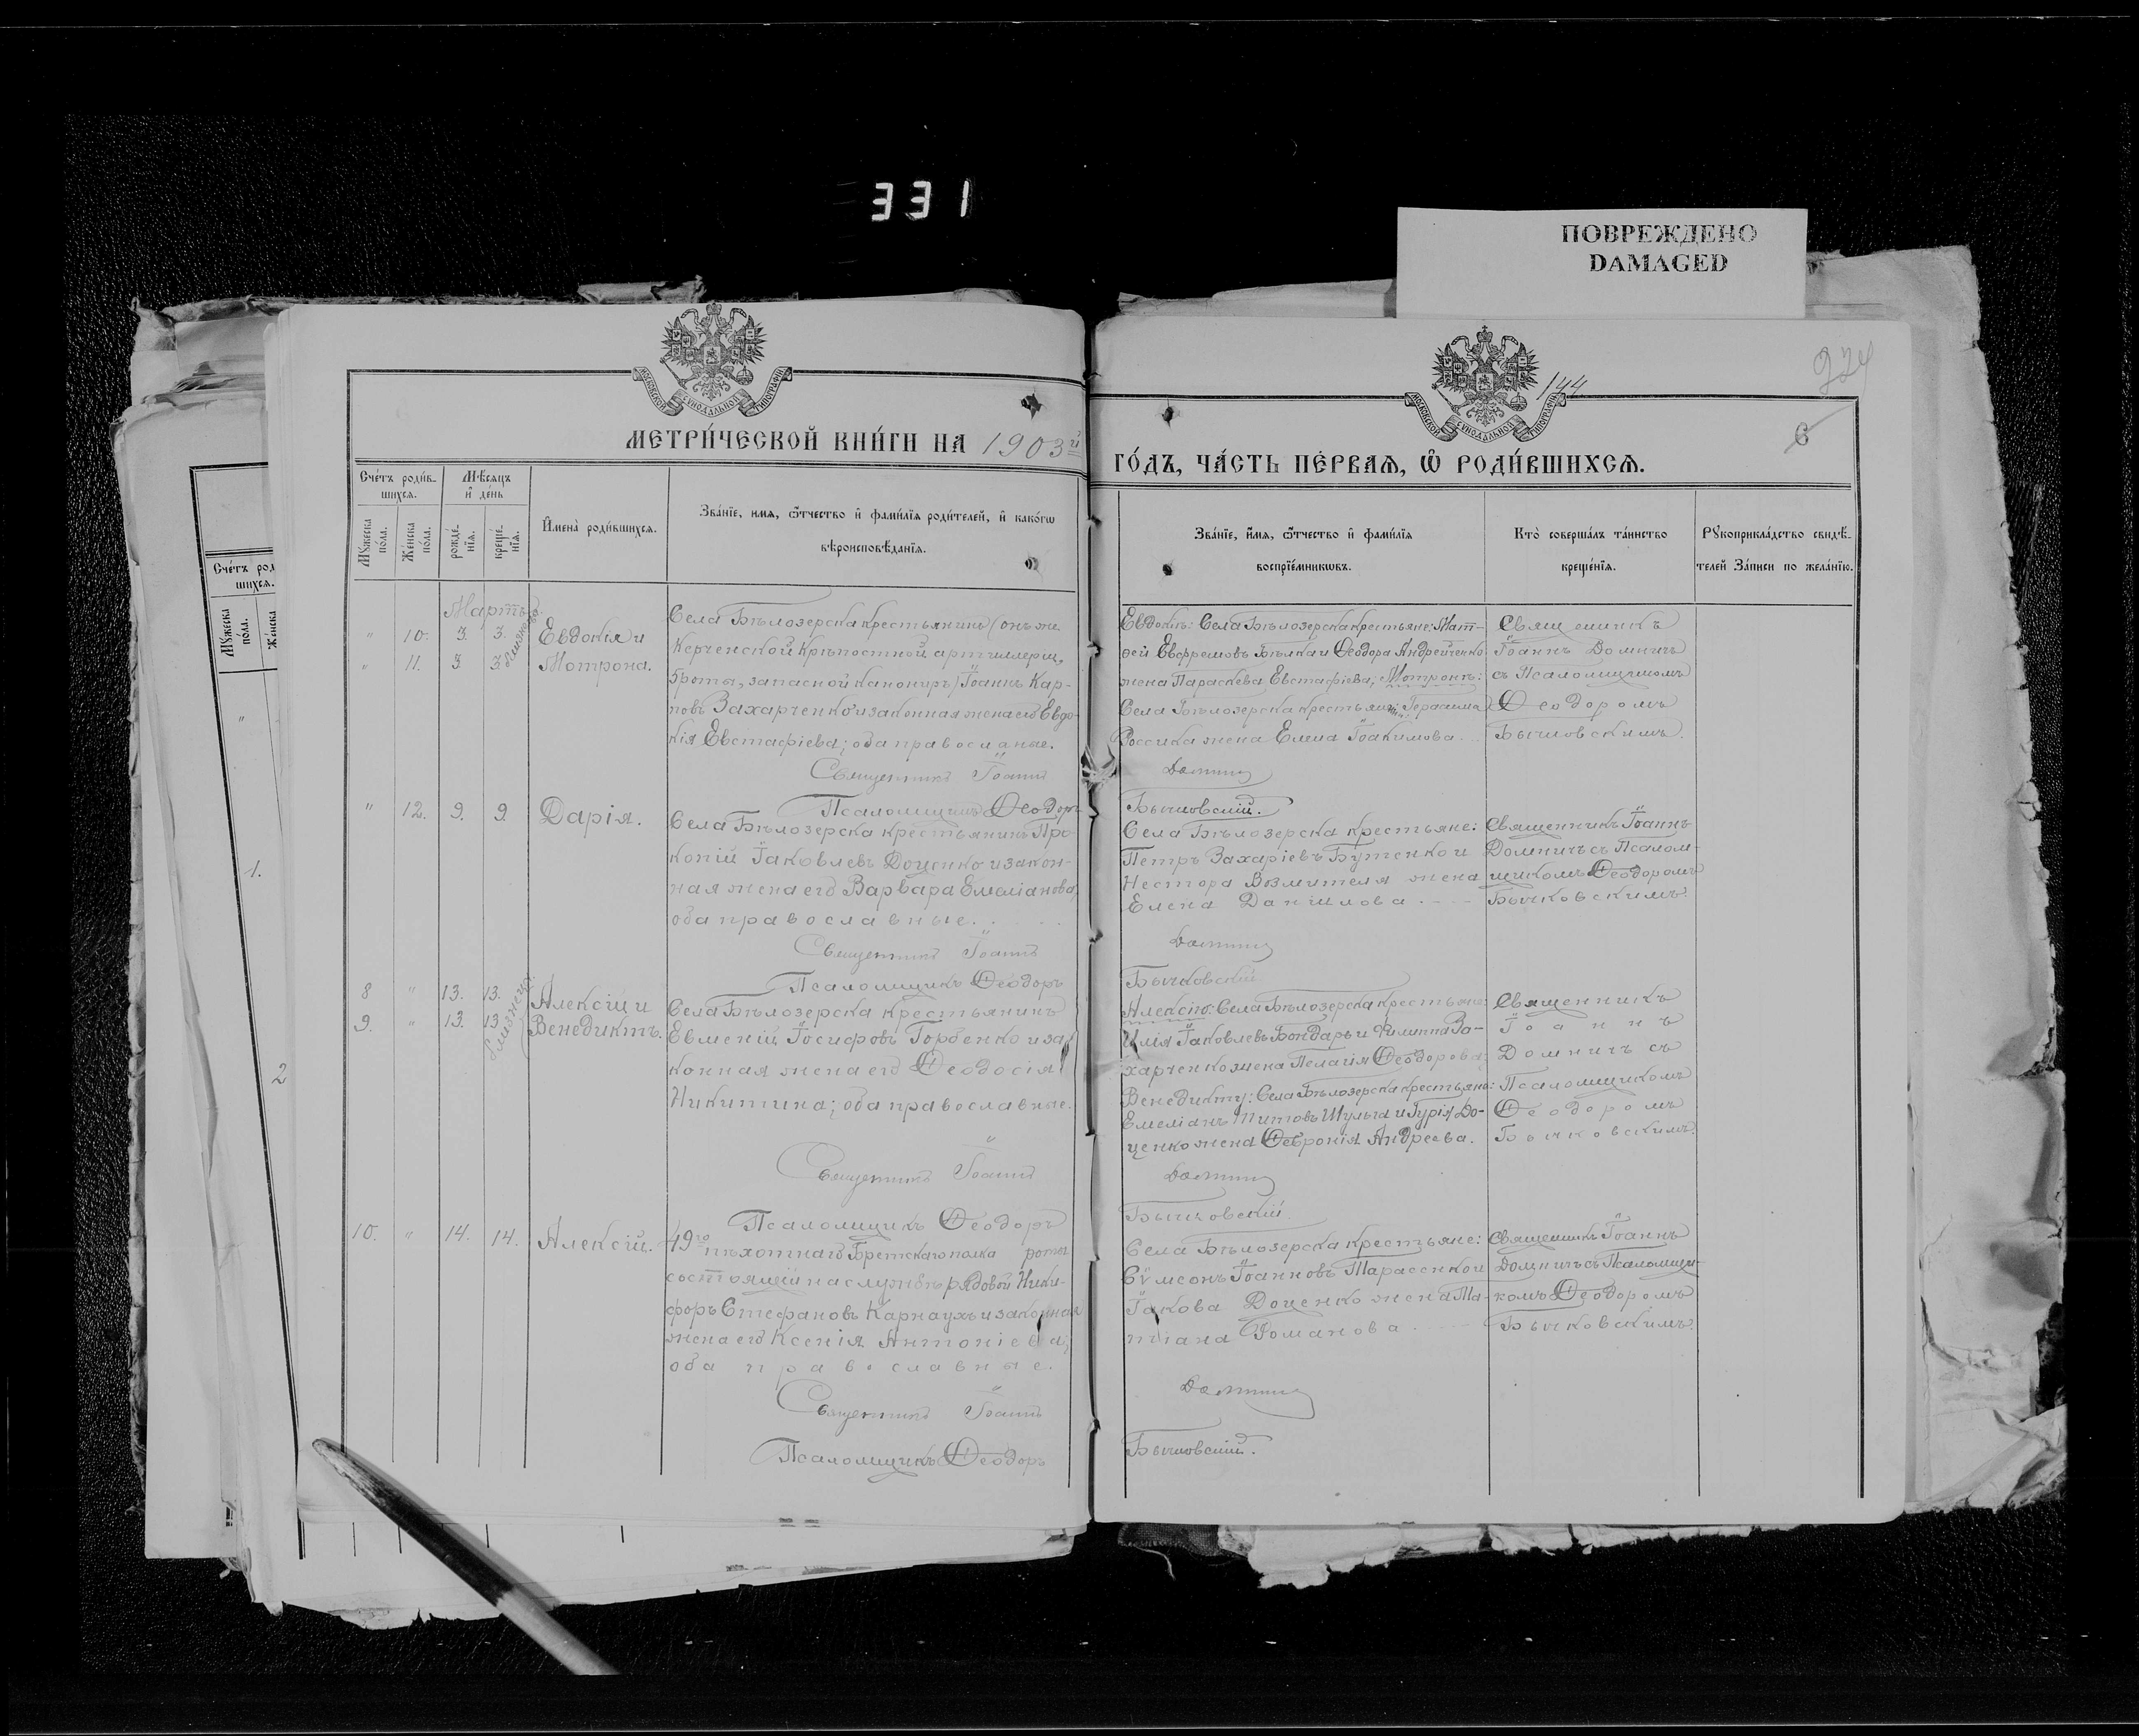 331
ПОВРЕЖДЕНО
DAMAGED
224
144
6
МОСКОВСКОЙ СУНОДАЛЬНОЙ ТИПОГРАФІИ
МОСКОВСКОЙ СУНОДАЛЬНОЙ ТИПОГРАФІИ
МЕТРИ́ЧЕСКОЙ КНИ́ГИ НА 1903й
ГО́ДЪ, ЧА́СТЬ ПЕ́РВАЯ, Ѡ҆ РОДИ́ВШИХСЯ.
Сче́тъ роди́в-
шихся.
Мѣ́сяцъ
и҆ де́нь
Му́жеска по́ла.
Же́нска по́ла.
рожде́-
нїя.
креще́-
нїя.
И҆мена̀ роди́вшихся.
Зва́нїе, имя, ѻ҆́тчество и҆ фами́лїя роди́телей, и҆ како́гѡ
вѣроисповѣ́данїя.
Зва́нїе, и҆́мя, ѻ҆́тчество и҆ фами́лїя
воспрїе́мникѡвъ.
Кто̀ соверша́лъ та́инство
креще́нїя.
Рукоприкла́дство свидѣ́-
телей За́писи по жела́нїю.
Сче́тъ род
шихся.
Му́жеска по́ла.
Же́нска
"
1.
2
Мартъ
" 10. 3. 3. Евдокія и
" 11. 3 3. Мотрона.
близнецы
Села Бѣлозерска крестьянинъ (онъ же
Керченской крѣпостной артиллеріи,
5 роты, запасной канониръ) Іоаннъ Кар-
повъ Захарченко и законная жена его Евдо-
кія Евстафіева; оба православные.
Священникъ Іоаннъ
Псаломщикъ Ѳеодоръ
Евдокіи: Села Бѣлозерска крестьяне: Мат-
ѳей Евфремовъ Бѣлка и Ѳеодора Андрейченко
жена Параскева Евстафіева; Мотронѣ:
Села Бѣлозерска крестьянинъ Герасима
Россика жена Елена Іоакимова.
Домничъ
Бычковскій.
Священникъ
Іоаннъ Домничъ
съ Псаломщикомъ
Ѳеодоромъ
Бычковскимъ.
" 12. 9. 9. Дарія.
Села Бѣлозерска крестьянинъ Про-
копій Іаковлевъ Доценко и закон-
ная жена его Варвара Емеліанова,
оба православные.
Священникъ Іоаннъ
Псаломщикъ Ѳеодоръ
Села Бѣлозерска крестьяне:
Петръ Захаріевъ Бутенко и
Нестора Возмителя жена
Елена Даніилова
Домничъ
Бычковскій
Священникъ Іоаннъ
Домничъ съ Псалом-
щикомъ Ѳеодоромъ
Бычковскимъ.
8 " 13. 13. Алексій и
9. " 13. 13 Венедиктъ.
близнецы
Села Бѣлозерска крестьянинъ
Евменій Іосифовъ Горбенко и за-
конная жена его Ѳеодосія
Никитина; оба православные.
Священникъ Іоаннъ
Псаломщикъ Ѳеодоръ
Алексію: Села Бѣлозерска крестьяне:
Илія Іаковлевъ Бондарь и Филиппа За-
харченко жена Пелагія Ѳеодорова;
Венедикту: Села Бѣлозерска крестьяне:
Емеліанъ Титовъ Шульга и Гурія До-
ценко жена Ѳевронія Андреева.
Домничъ
Бычковскій.
Священникъ
Іоаннъ
Домничъ съ
Псаломщикомъ
Ѳеодоромъ
Бычковскимъ.
10. " 14. 14. Алексій.
49го пѣхотнаго Бретскаго полка роты
состоящій на службѣ рядовой Ники-
форъ Стефановъ Карнаухъ и законная
жена его Ксенія Антоніева;
оба православные.
Священникъ Іоаннъ
Псаломщикъ Ѳеодоръ
Села Бѣлозерска крестьяне:
Сѵмеонъ Іоанновъ Тарасенко и
Іакова Доценко жена Та-
тіана Романова
Домничъ
Бычковскій.
Священникъ Іоаннъ
Домничъ съ Псаломщи-
комъ Ѳеодоромъ
Бычковскимъ.